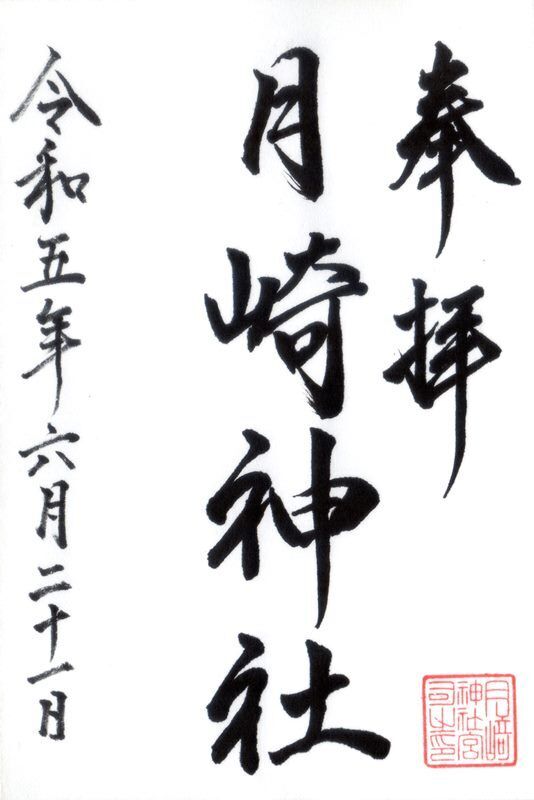 奉拝
月崎神社
令和五年六月二十一日
月﨑
神社宮
司之印